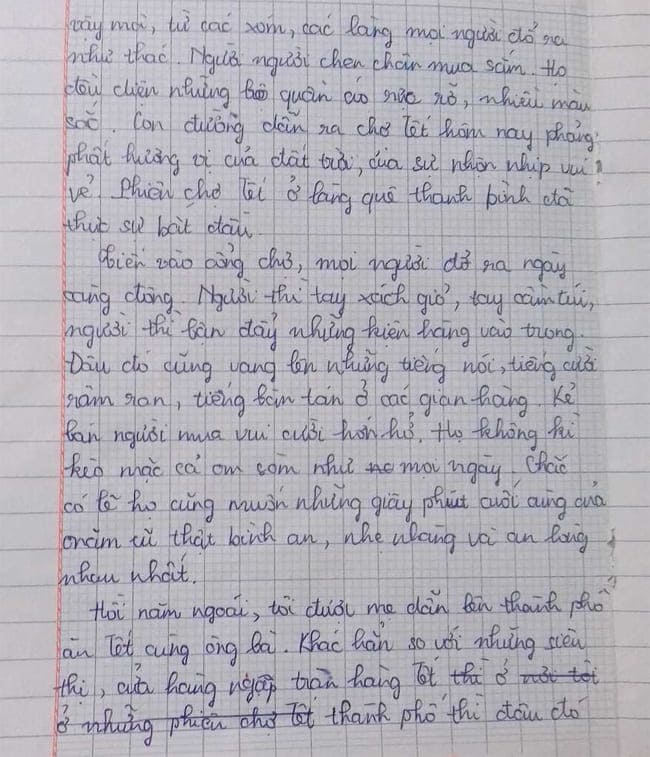 vậy mới, từ các xóm, các làng mọi người đổ ra
như thác. Người người chen chân mua sắm. Họ
đều diện những bộ quần áo rực rỡ, nhiều màu
sắc. Con đường dẫn ra chợ Tết hôm nay phảng
phất hương vị của đất trời, của sự nhộn nhịp vui
vẻ. Phiên chợ Tết ở làng quê thanh bình đã
thực sự bắt đầu.
Tiến vào cổng chợ, mọi người đổ ra ngày
càng đông. Người thì tay xách giỏ, tay cầm túi,
người thì bận đẩy những kiện hàng vào trong.
Đâu đó cũng vang lên những tiếng nói, tiếng cười
râm ran, tiếng bàn tán ở các gian hàng. Kẻ
bán người mua vui cười hớn hở. Họ không kì
kèo mặc cả om sòm như mọi ngày. Chắc
có lẽ họ cũng muốn những giây phút cuối cùng của
năm cũ thật bình an, nhẹ nhàng và an lòng
nhau nhất.
Hồi năm ngoái, tôi được mẹ dẫn lên thành phố
ăn Tết cùng ông bà. Khác hẳn so với những siêu
thị, cửa hàng ngập tràn hàng Tết thì ở nơi tôi
ở những phiên chợ Tết thành phố thì đâu đó